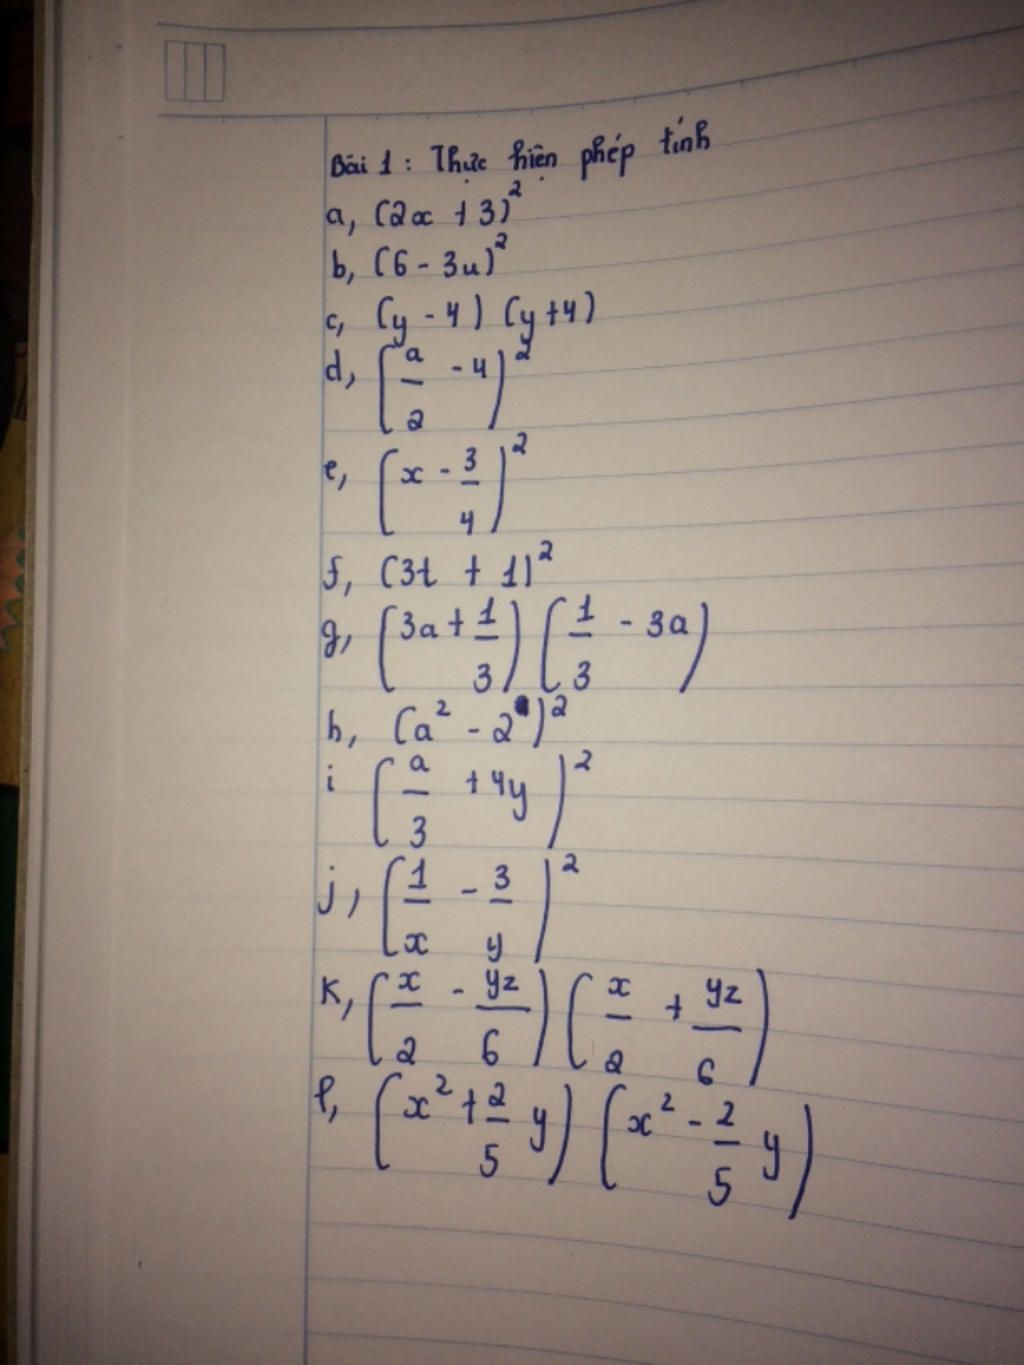 Bài 1 : Thực hiện phép tính
a, (2x + 3)²
b, (6 - 3u)²
c, (y - 4) (y + 4)
d, (a/2 - 4)²
e, (x - 3/4)²
f, (3t + 1)²
g, (3a + 1/3) (1/3 - 3a)
h, (a² - 2)²
i (a/3 + 4y)²
j, (1/x - 3/y)²
k, (x/2 - yz/6) (x/2 + yz/6)
l, (x² + 2/5 y) (x² - 2/5 y)